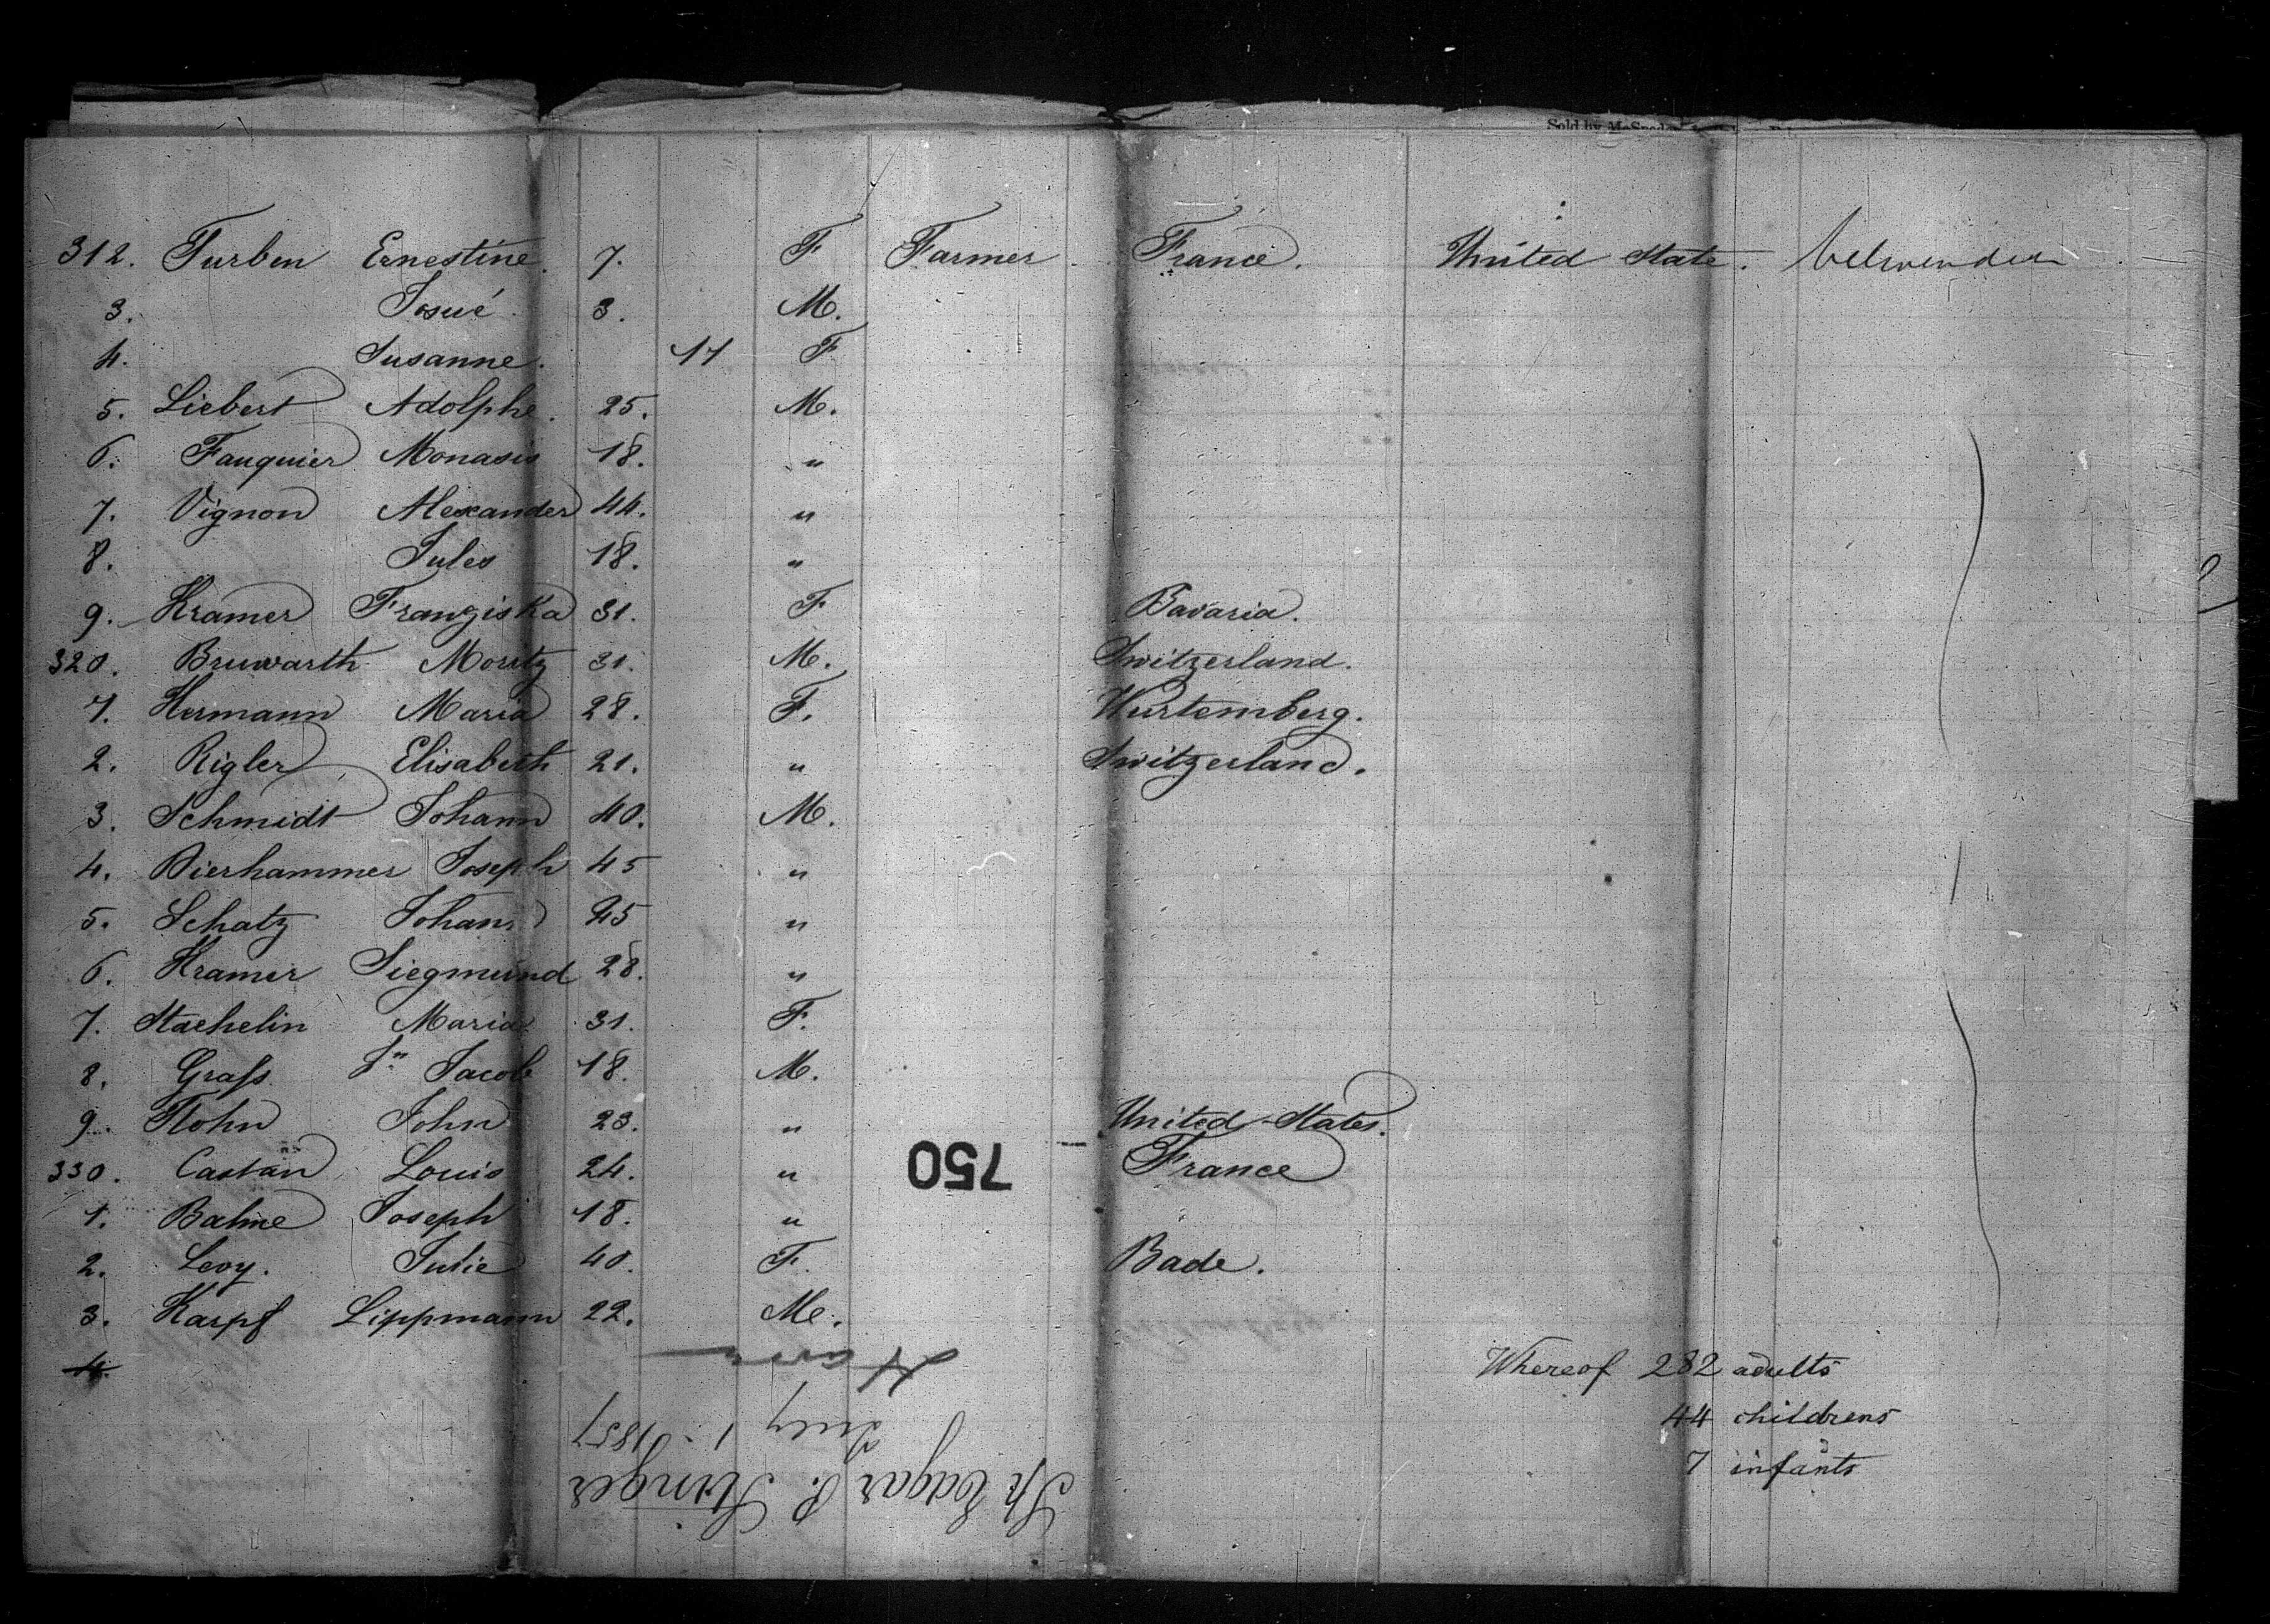 Sold by
312. Turben Ernestine. 7. F Farmer France. United State.
3. Josué. 3. M.
4. Susanne. 11 F
5. Liebert Adolphe. 25. M.
6. Fauquier Monasis 18. "
7. Vignon Alexander 44. "
8. Jules 18. "
9. Kramer Franziska 31. F Bavaria.
320. Bruwarth Moritz 31. M. Switzerland.
1. Hermann Maria 28. F. Wurtemberg.
2. Rigler Elisabeth 21. " Switzerland.
3. Schmidt Johann 40. M.
4. Bierhammer Joseph 45 "
5. Schatz Johann 45 "
6. Kramer Siegmund 28. "
7. Staehelin Maria 31. F.
8. Grass Jn. Jacob 18. M.
9. John 23. " United States.
330. Castan Louis 24. " France
1. Balme Joseph 18. "
2. Levy. Julie 40. F. Bade.
3. Karpf Lippmann 22. M.
4.
Whereof 282 adults
44 childrens
7 infants
750
Sh Edgar P. Stringer
July 1. 1857
Havre